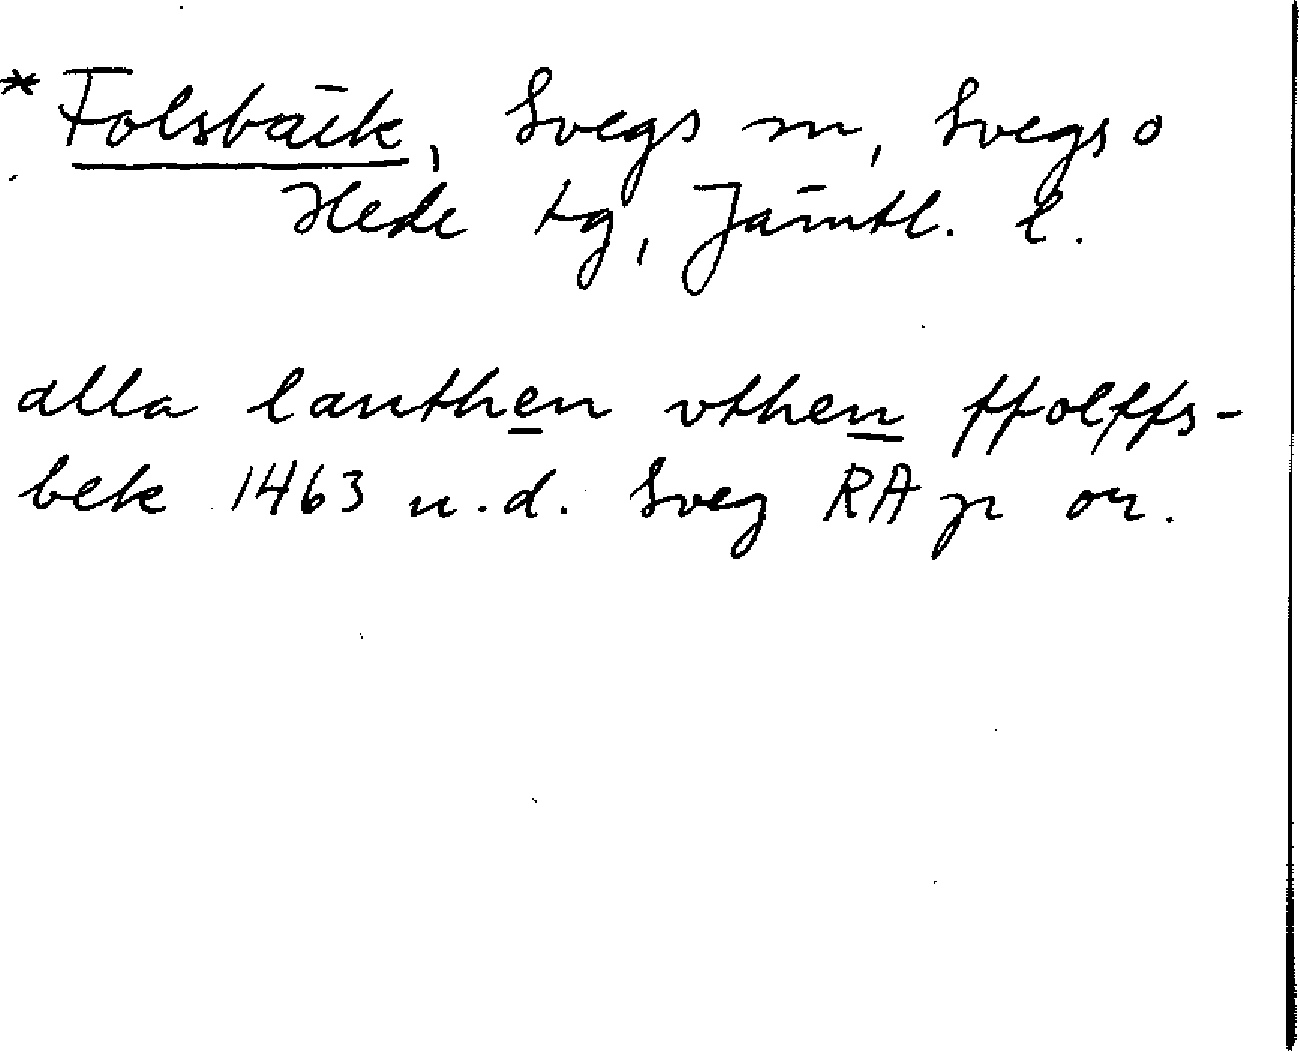 * Folsbäck, Svegs m, Svegs o
Hede tg, Jämtl. l.
alla lanthen vthen ffolffs-
bek 1463 u.d. Sveg RA p or.